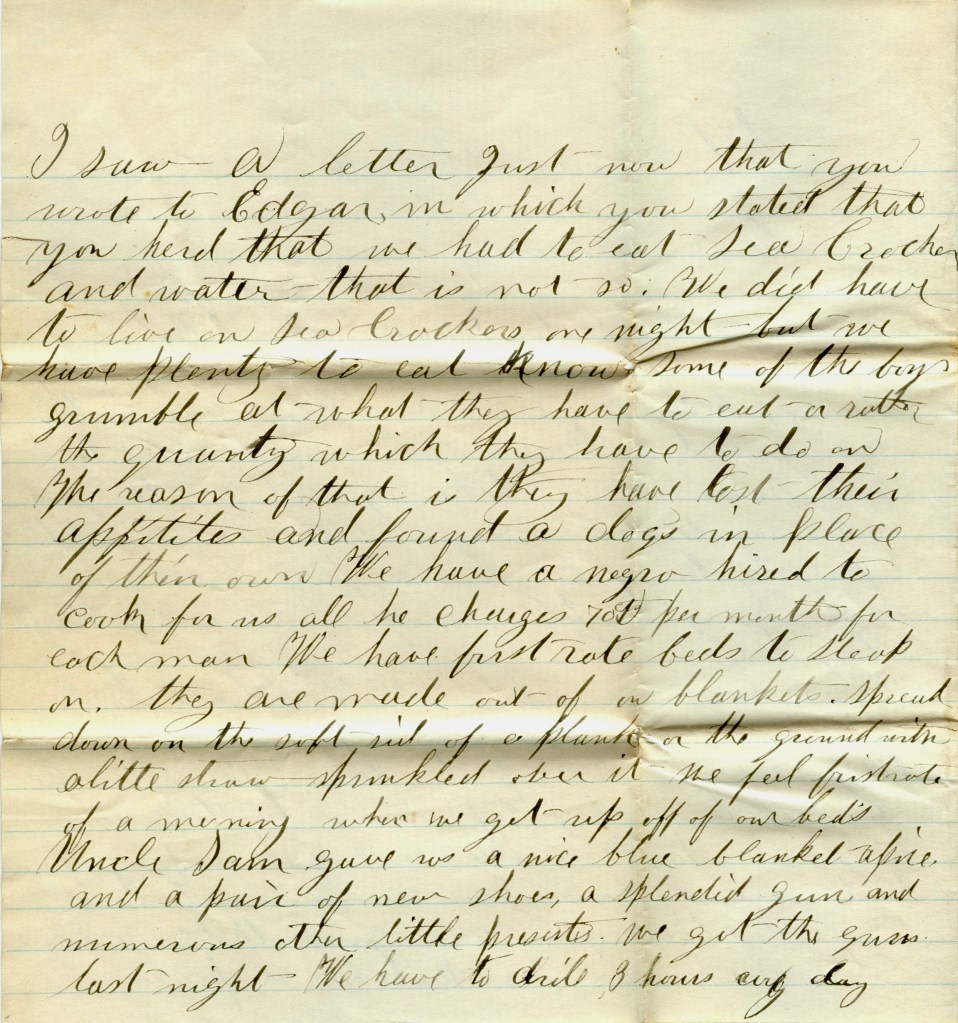 I saw a letter Just now that you
wrote to Edgar, in which you stated that
you herd that we had to eat Sea Crocker
and water that is not so. We did have
to live on Sea Crockers one night but we
have plenty to eat know some of the boys
grumble at what they have to eat or rather
the quanty which they have to do on
The reason of that is they have lost their
appitites and found a dogs in place
of thier own We have a negro hired to
cook for us all he charges per month for
each man We have first rate beds to sleap
on. they are made out of our blankets. spread
down on the soft sid of a plank or the ground with
a litte straw sprinkled over it We feel fristrate
of a morning when we get up off of our beds
Uncle Sam gave us a nice blue blanket apiece
and a pair of new shoes, a splendid gun and
numerous other little presents. We got the guns
last night We have to drile 8 hours evry day